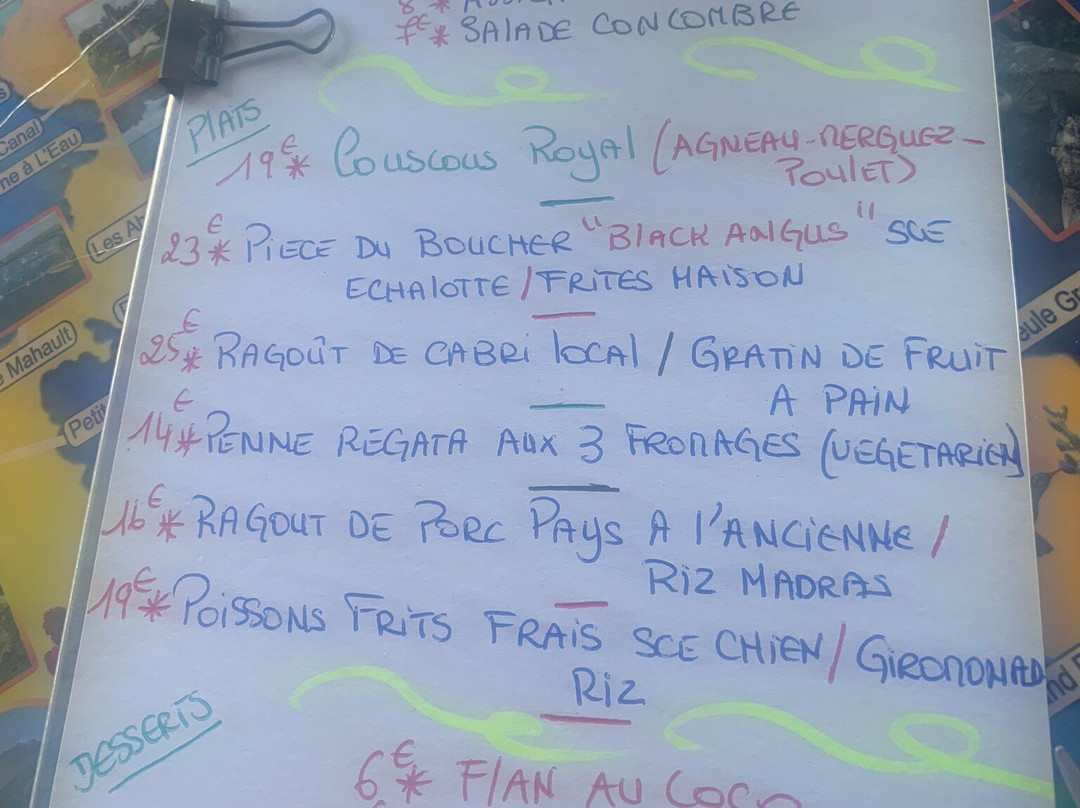 7€ * SALADE CONCOMBRE
PLATS
19€ * Couscous Royal (AGNEAU-MERGUEZ-
POULET)
23€ * PIECE DU BOUCHER "BLACK ANGUS" SCE
ECHALOTTE / FRITES MAISON
25€ * RAGOÛT DE CABRI local / GRATIN DE FRUIT
A PAIN
14€ * PENNE REGATA AUX 3 FROMAGES (VEGETARIEN)
16€ * RAGOUT DE PORC PAYS A l'ANCIENNE /
RIZ MADRAS
19€ * POISSONS FRITS FRAIS SCE CHIEN / GIROMONAD
RIZ
DESSERTS
6€ * FLAN AU COCO
Canal
ne à L'Eau
Les Ab
Mahault
Petit
eule Gr
nd